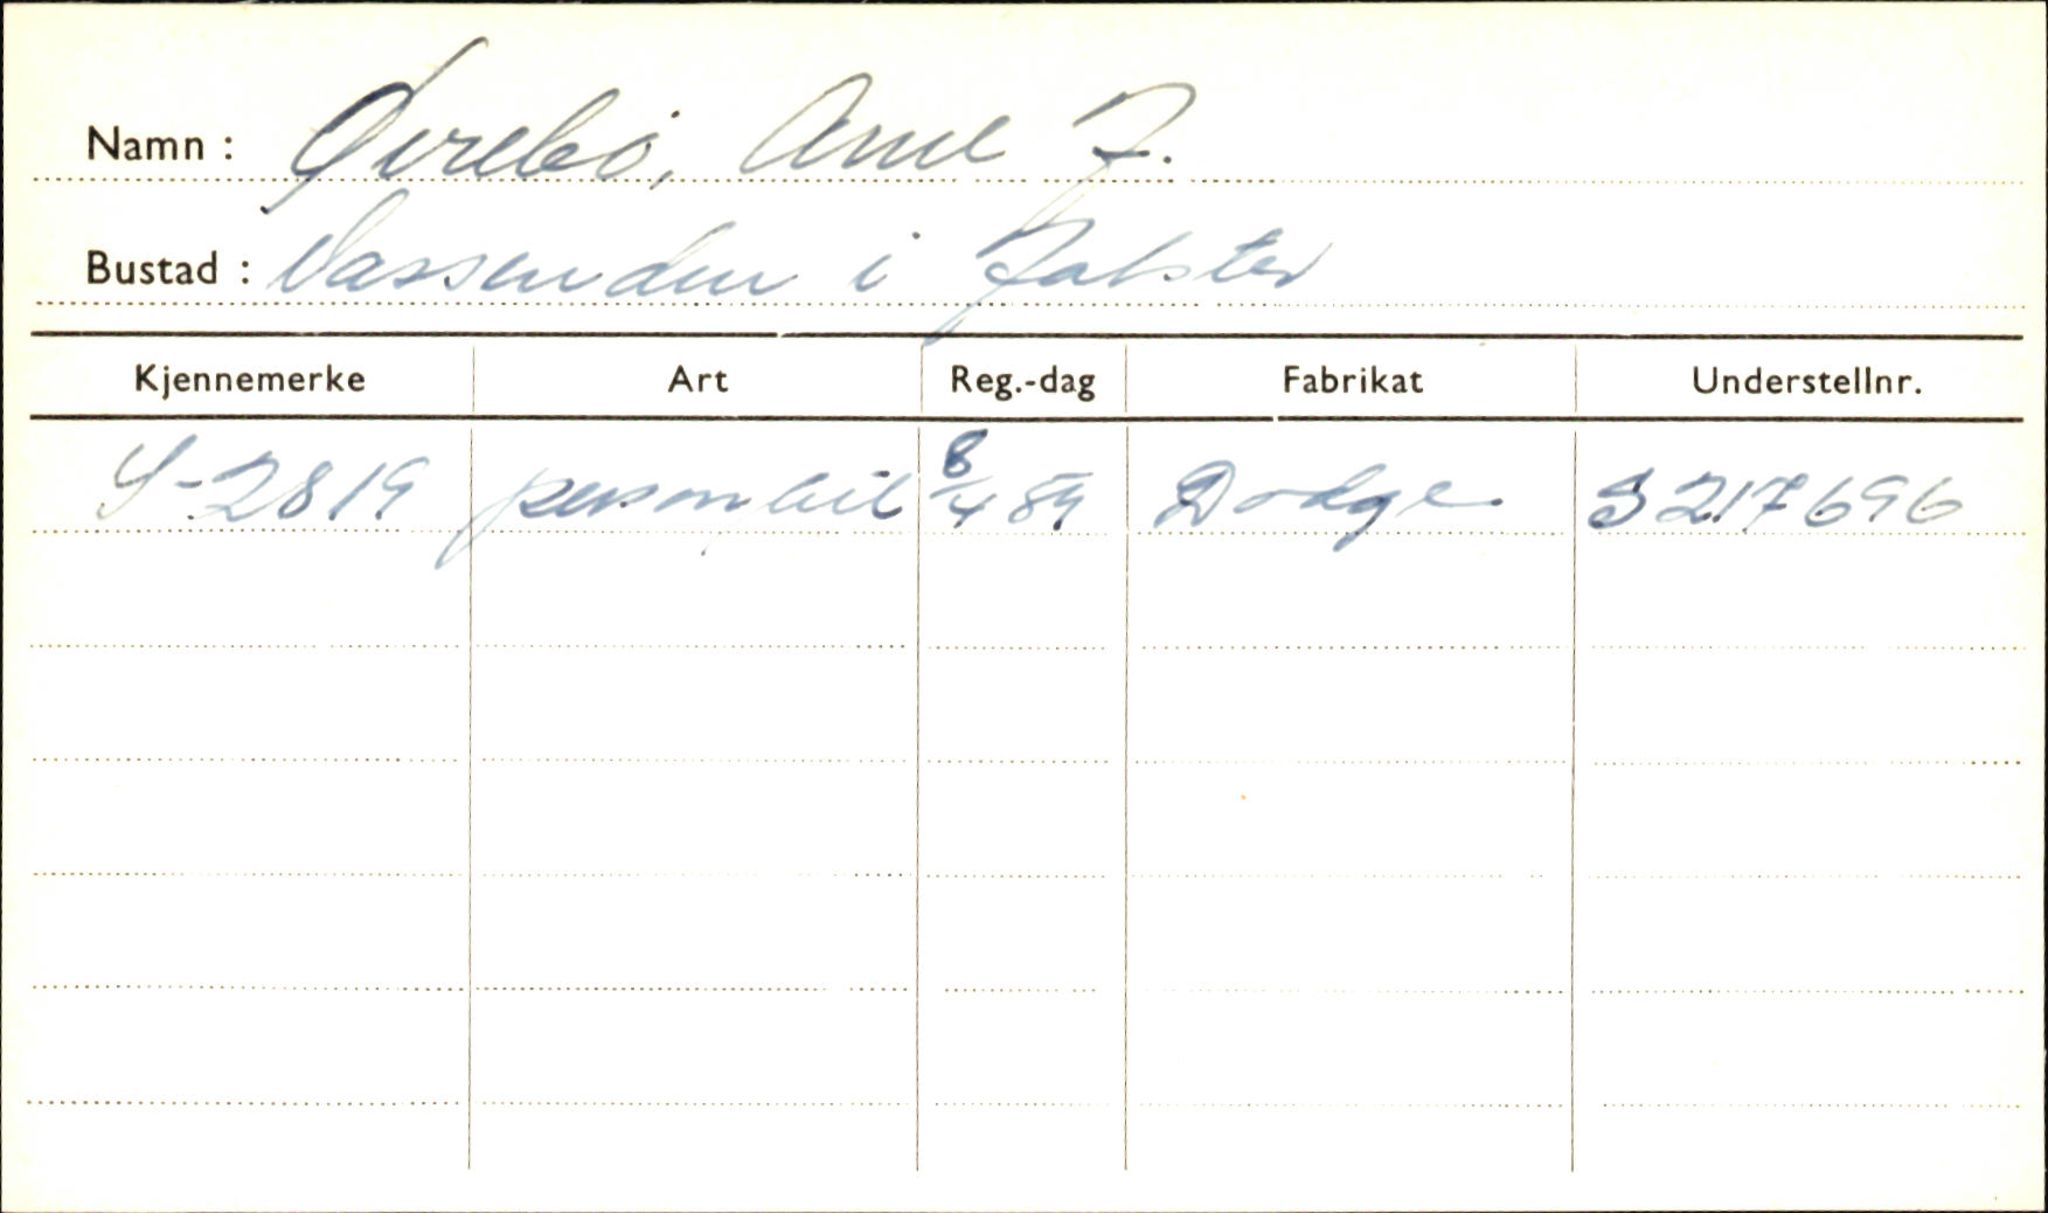 Namn : Øvrebø, Arne J.
Bustad : Vassenden i Jølster
Kjennemerke Art Reg.-dag Fabrikat Understellnr.
S-2819 personbil 8/4 59 Dodge S217696